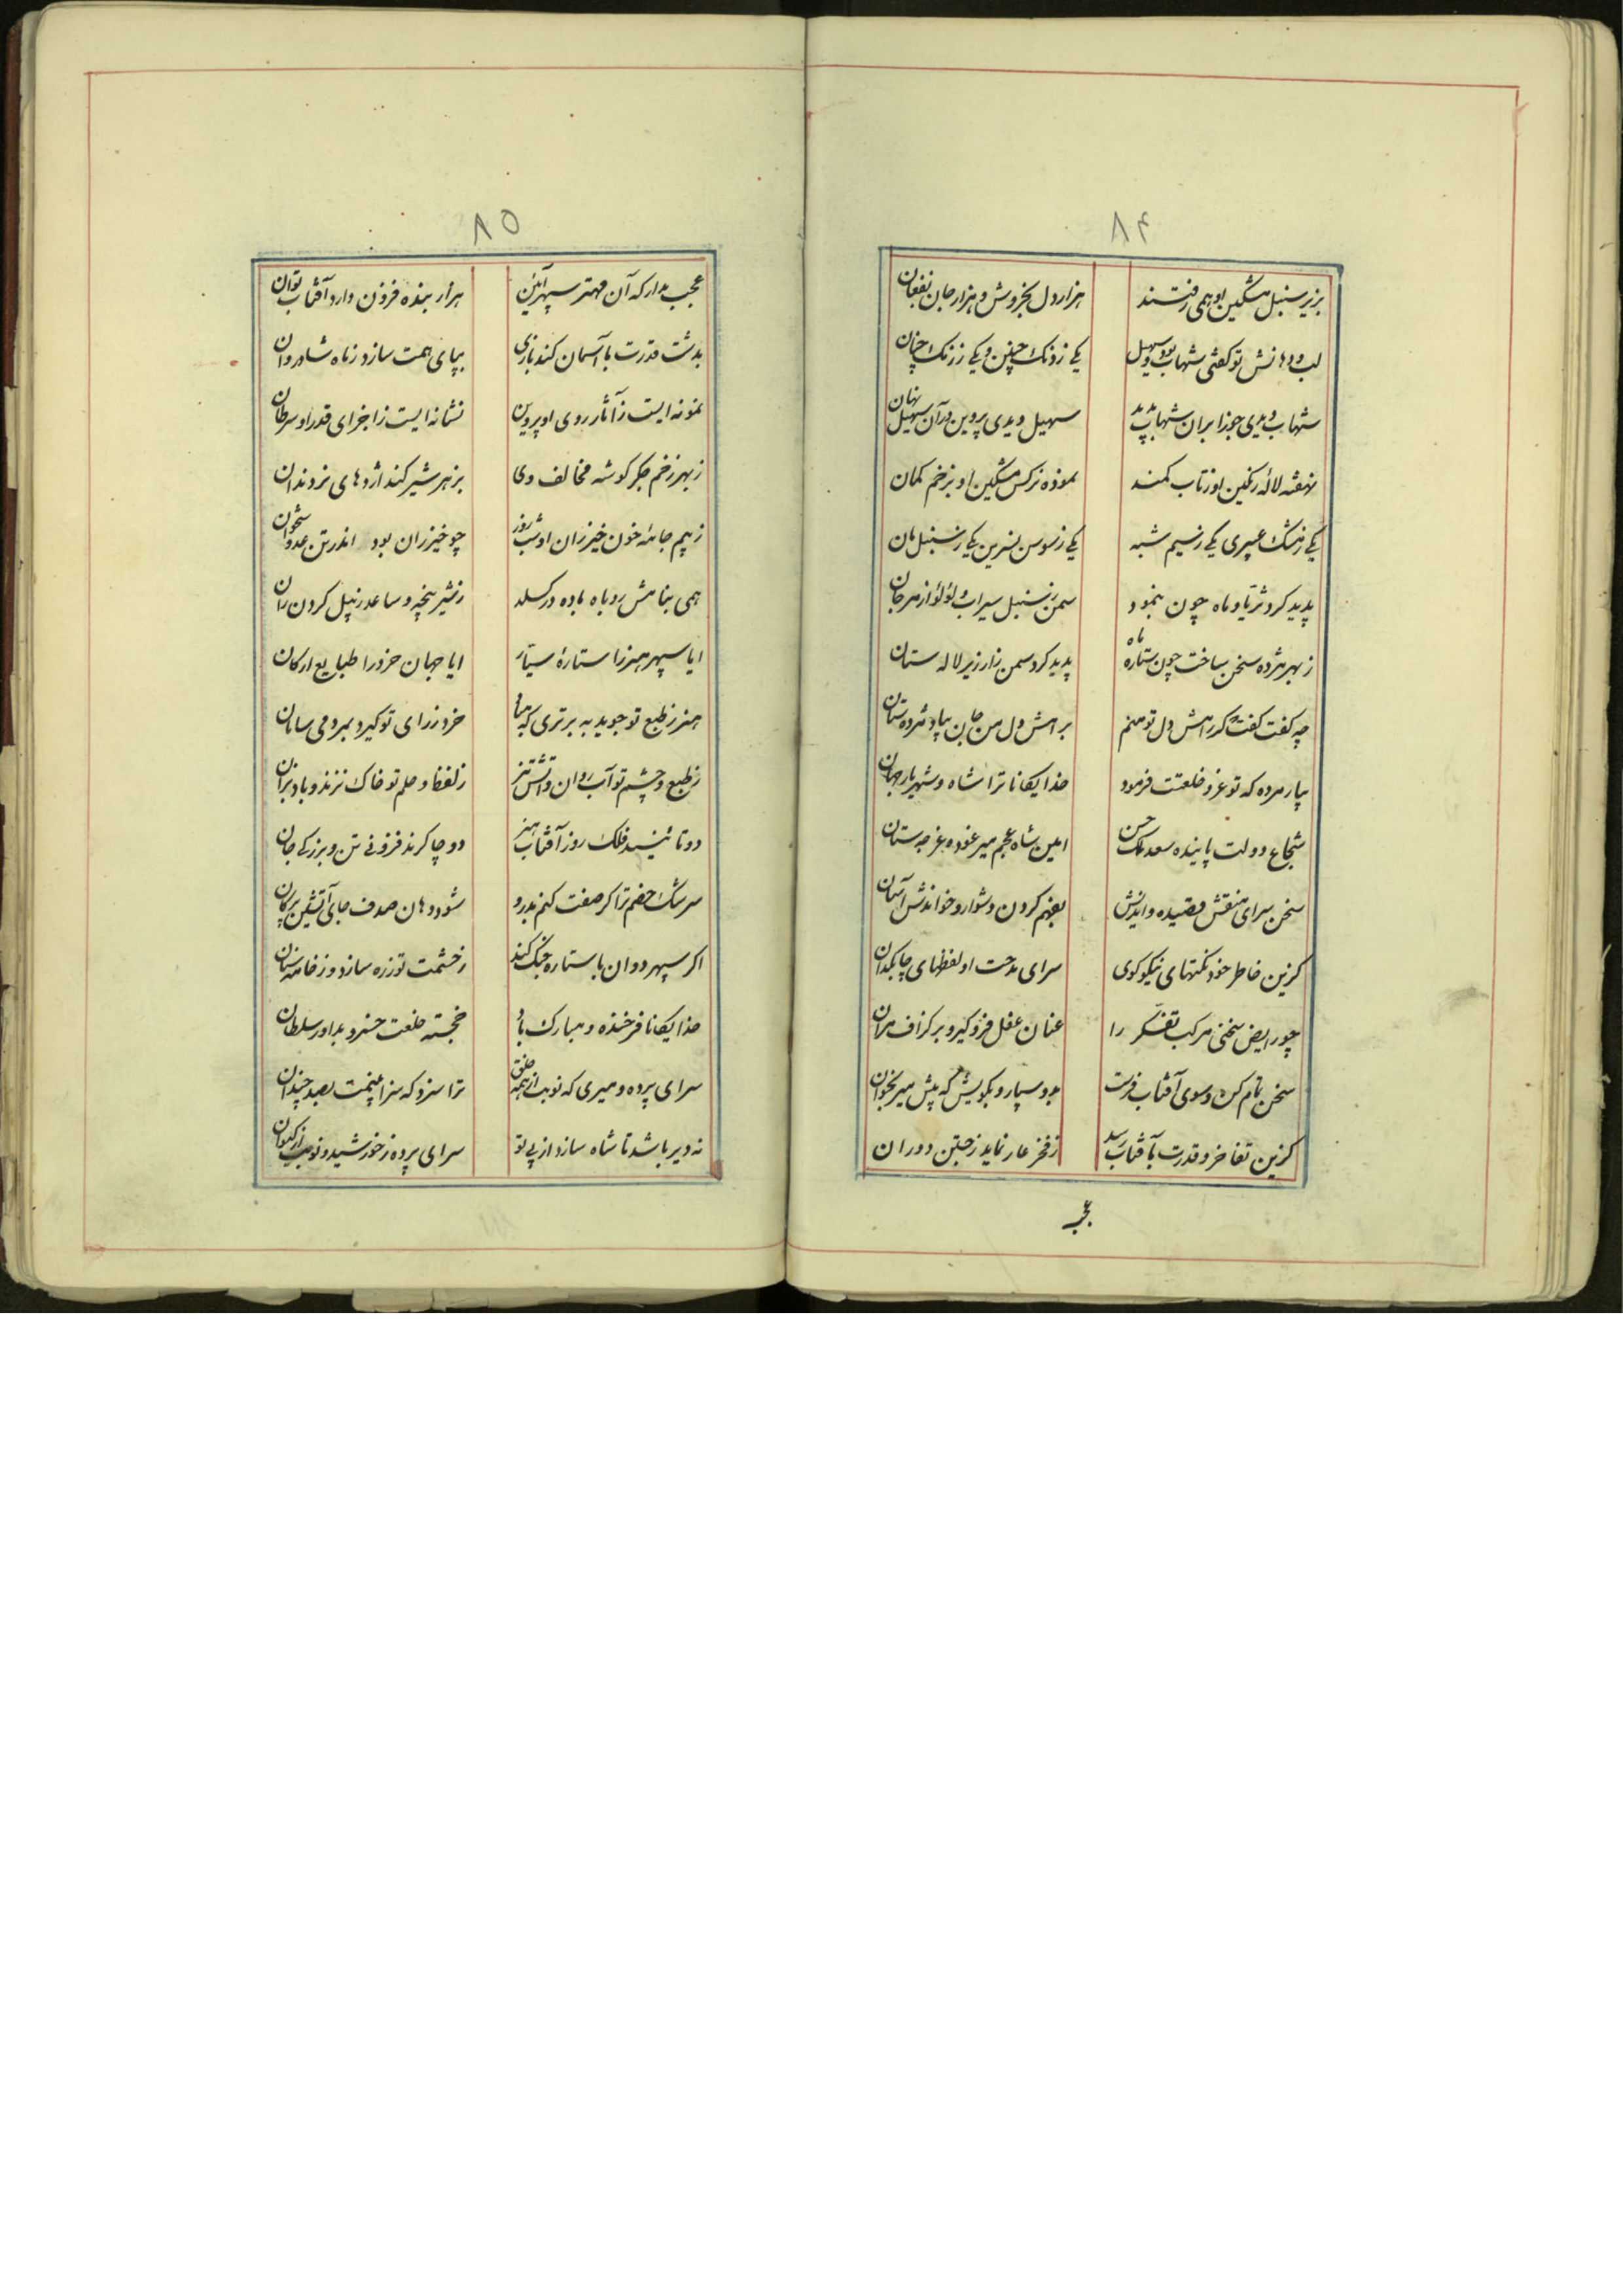 ۸۴
بزیر سنبل مشکین او همی رفتند هزار دل بخروش و هزار جان بفغان
لب و دهانش تو گفتی شهاب بود و سهیل یکی زرنک چنین و یکی زرنک چنان
شهاب دیدی جوزا بران شهاب پدید سهیل دیدی پروین در آن سهیل نهان
نهفته لاله رنکین او زتاب کمند نموده نرکس مشکین او بزخم کمان
یکی زمشک عبیری یکی زسیم شبه یکی زسوسن نسرین یکی زسنبل بان
پدید کرد ثریا و ماه چون بنمود سمن زسنبل سیراب و لؤلؤ از مرجان
ز بهر مژده سخن ساخت چون ستاره ماه پدید کرد سمن زار زیر لاله ستان
چه کفت کفت که رامش دل تو منم برامش دل من جان بیار و مژده ستان
بیار مرده که تو عز و خلعت فرمود خدایکانا ترا شاه و شهریار جهان
شجاع دولت پاینده سعد ملک حسن امین شاه عجم میر عوده غرجه ستان
سخن سرای منقش قصیده و ابدانش بفهم کردن دشوار و خواندنش آسان
کزین خاطر خود نکتهای نیکوکوی سرای مدحت او لفظهای چابکدان
چو رایض سخنی مرکب تفکر را عنان عقل فرو کیر و بر کزاف مران
سخن تمام کن و سوی آفتاب فرست بدو سپار و بکویش که پیش میر بخوان
کزین تفاخر و قدرت بآفتاب رسد ز فخر عار نماید ز جستن دوران
عجب
۸۵
عجب مدار که آن مهتر سپهر آئین هزار بنده فزون دارد آفتاب توان
بدشت قدرت با آسمان کند بازی بپای همت سازد ز ماه شادروان
نمونه ایست ز آثار روی او پروین نشانه ایست ز اجزای قدر او سرطان
ز بهر زخم جکر کوشه مخالف وی بزهر شیر کند اژدهای نر دندان
ز بیم جامه خون خیزران او شب و روز چو خیزران بود اندر تن عدو ستخوان
همی بنامش روباه ماده در کسلد ز شیر پنجه و ساعد ز پیل کردن ران
ایا سپهر هنر را ستاره سیار ایا جهان خرد را طبایع ارکان
هنر ز طبع تو جوید به برتری که بها خرد ز رای تو کیرد بمردمی سامان
ز طبع و چشم تو آب روان و آتش تیز ز لفظ و حلم تو خاک نژند و باد بزان
دو تا نئید فلک روز آفتاب هنر دو چاکرند فزونی تن و بزرکی جان
سرشک خصم ترا کر صفت کنم بدرو شود دهان صدف جای آتشین پیکان
اکر سپهر دوان با ستاره جنک کند ز خشمت تو زره سازد و ز خامه سنان
خدایکانا فرخنده و مبارک باد خجسته خلعت خسرو بداور سلطان
سرای پرده و میری که نوبت از همه خلق ترا سزد که سزا بینمت بصد چندان
نه دیر باشد تا شاه سازد از پی تو سرای پرده ز خورشید و نوبت از کیوان